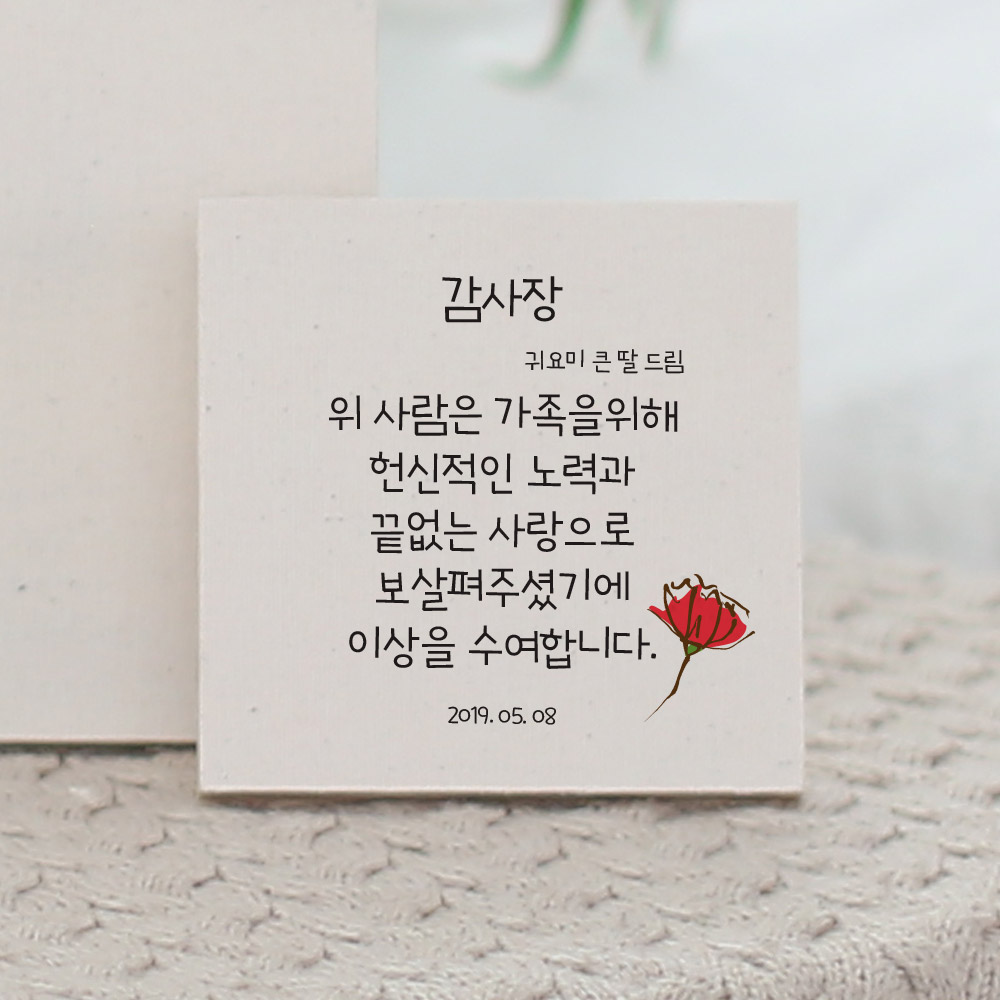 감사장
귀요미 큰 딸 드림
위 사람은 가족을위해
헌신적인 노력과
끝없는 사랑으로
보살펴주셨기에
이상을 수여합니다.
2019. 05. 08